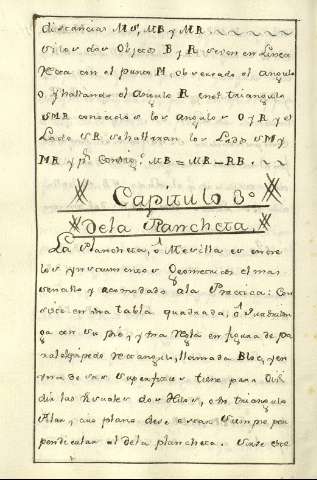 distancias MO, MB y MR
si los dos Objetos B y R estan en Linea
Recta con el punto M, observado el angulo
O. y hallando el angulo R en el triangulo
OMR conocidos los angulos O y R y el
Lado OR se hallaran los Lados OM y
MR y p.r Consig.te MB = MR - RB.
Capitulo 8º
De la Plancheta,
La Plancheta, ô Mesilla es entre
los Ynstrumentos Geometricos el mas
sencillo y acomodado a la Practica: Con
siste en una tabla quadrada, ô Quadrilon
ga con su pié, y una Regla en figura de pa
ralelipipedo rectangulo, llamada
una de sus superficies tiene para
dos
Alar, y cuio plano deve estar siempre per
pendicular al de la plancheta. Sirve este